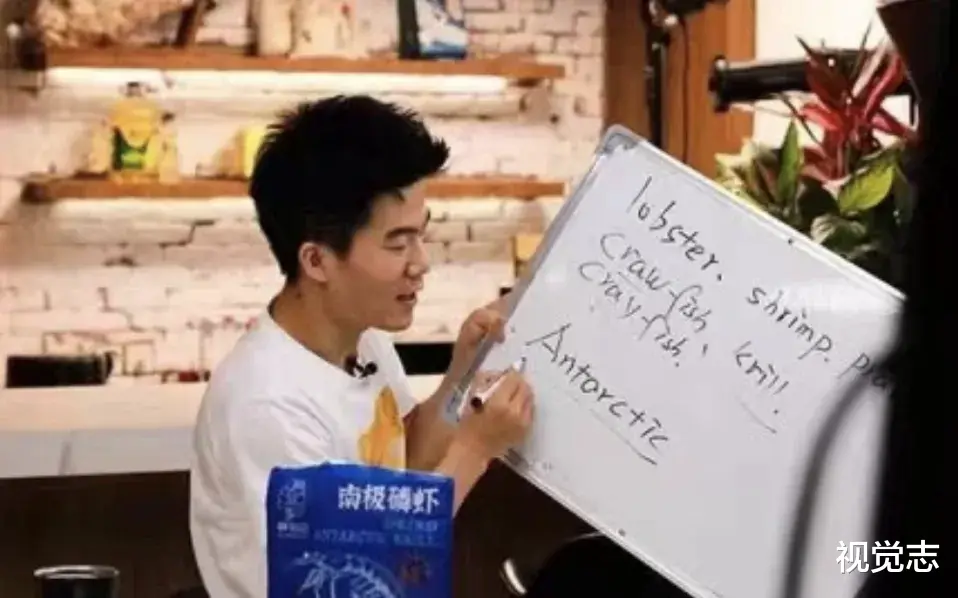 lobster. shrimp.
craw-fish
cray-fish. krill.
Antarctic
南极磷虾
ANTARCTIC KRILL
视觉志